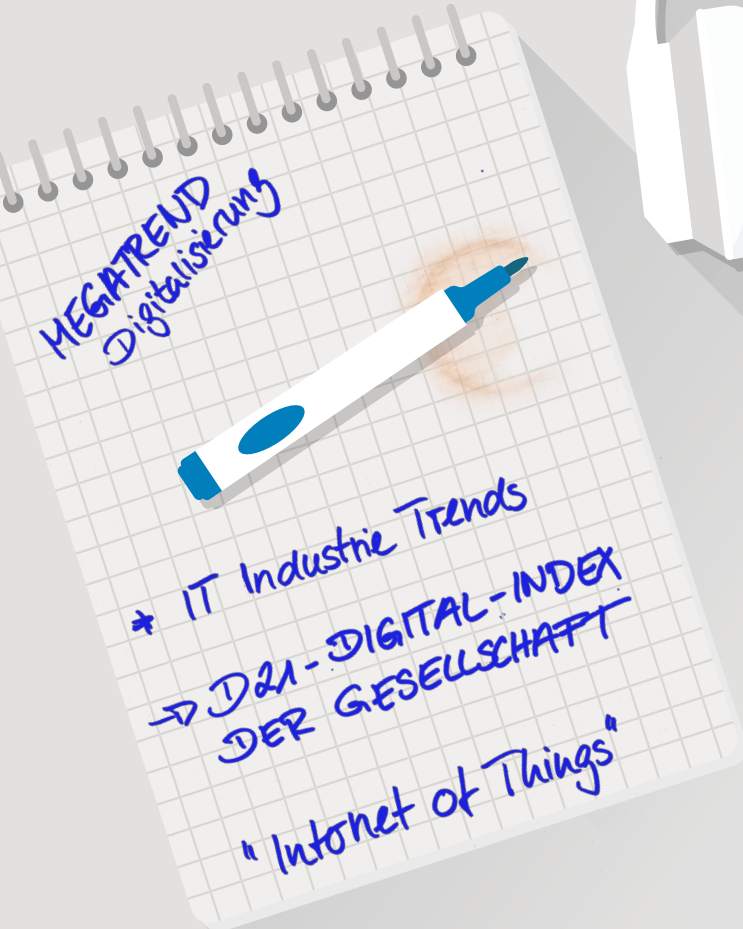 MEGATREND
Digitalisierung
* IT Industrie Trends
→ D21-DIGITAL-INDEX
DER GESELLSCHAFT
"Internet of Things"